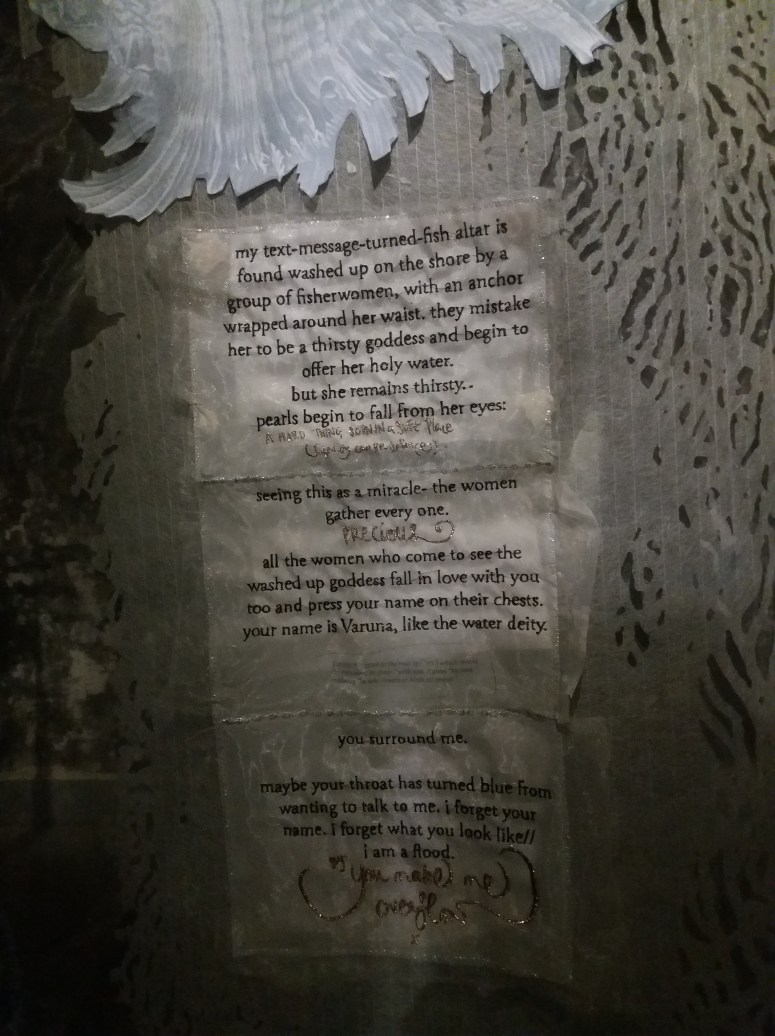 my text-message-turned-fish altar is
found washed up on the shore by a
group of fisherwomen, with an anchor
wrapped around her waist. they mistake
her to be a thirsty goddess and begin to
offer her holy water.
but she remains thirsty..
pearls begin to fall from her eyes:
A HARD THING
seeing this as a miracle- the women
gather every one.
PRECIOUS
all the women who come to see the
washed up goddess fall in love with you
too and press your name on their chests.
your name is Varuna, like the water deity.
you surround me.
maybe your throat has turned blue from
wanting to talk to me. i forget your
name. i forget what you look like//
i am a flood.
you make me
overflow
x